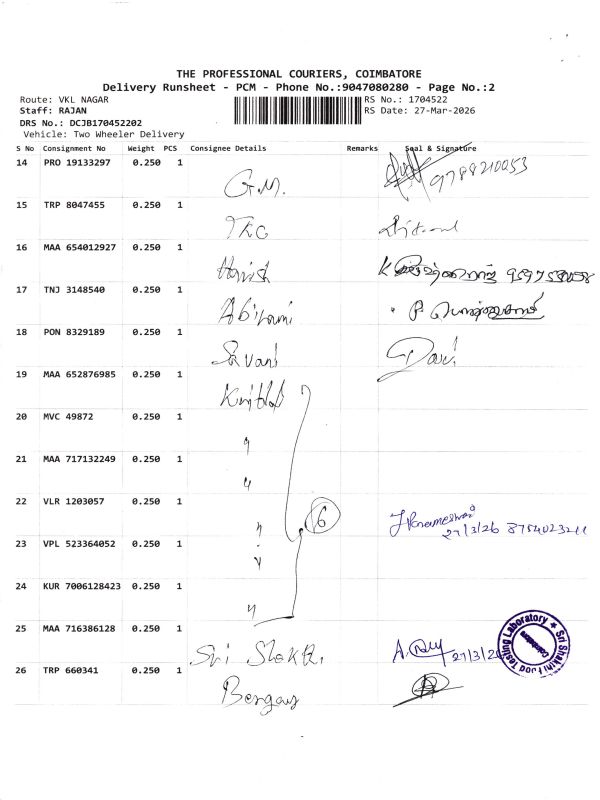 THE PROFESSIONAL COURIERS, COIMBATORE
Delivery Runsheet - PCM - Phone No.:9047080280 - Page No.:2
Route: VKL NAGAR
RS No.: 1704522
Staff: RAJAN
RS Date: 27-Mar-2026
DRS No.: DCJB170452202
Vehicle: Two Wheeler Delivery
S No Consignment No Weight PCS Consignee Details Remarks Seal & Signature
14 PRO 19133297 0.250 1 G.M. 9788210053
15 TRP 8047455 0.250 1
16 MAA 654012927 0.250 1 Harish K
17 TNJ 3148540 0.250 1 Abirami P
18 PON 8329189 0.250 1
19 MAA 652876985 0.250 1
20 MVC 49872 0.250 1 "
21 MAA 717132249 0.250 1 "
22 VLR 1203057 0.250 1 " 6 27/3/26
23 VPL 523364052 0.250 1 "
24 KUR 7006128423 0.250 1 "
25 MAA 716386128 0.250 1 Sri Shakti A. 27/3/26
Sri Shakthi Food Testing Laboratory
26 TRP 660341 0.250 1